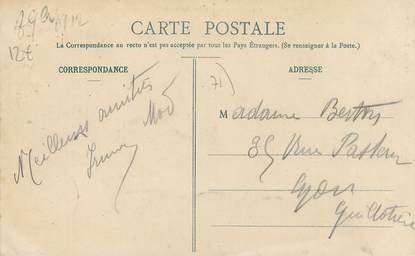 CARTE POSTALE
La Correspondance au recto n'est pas acceptée par tous les Pays Étrangers. (Se renseigner à la Poste.)
CORRESPONDANCE
ADRESSE
71)
Meilleures amitiés
Madame
35 Rue Pasteur
Lyon
Guillotière